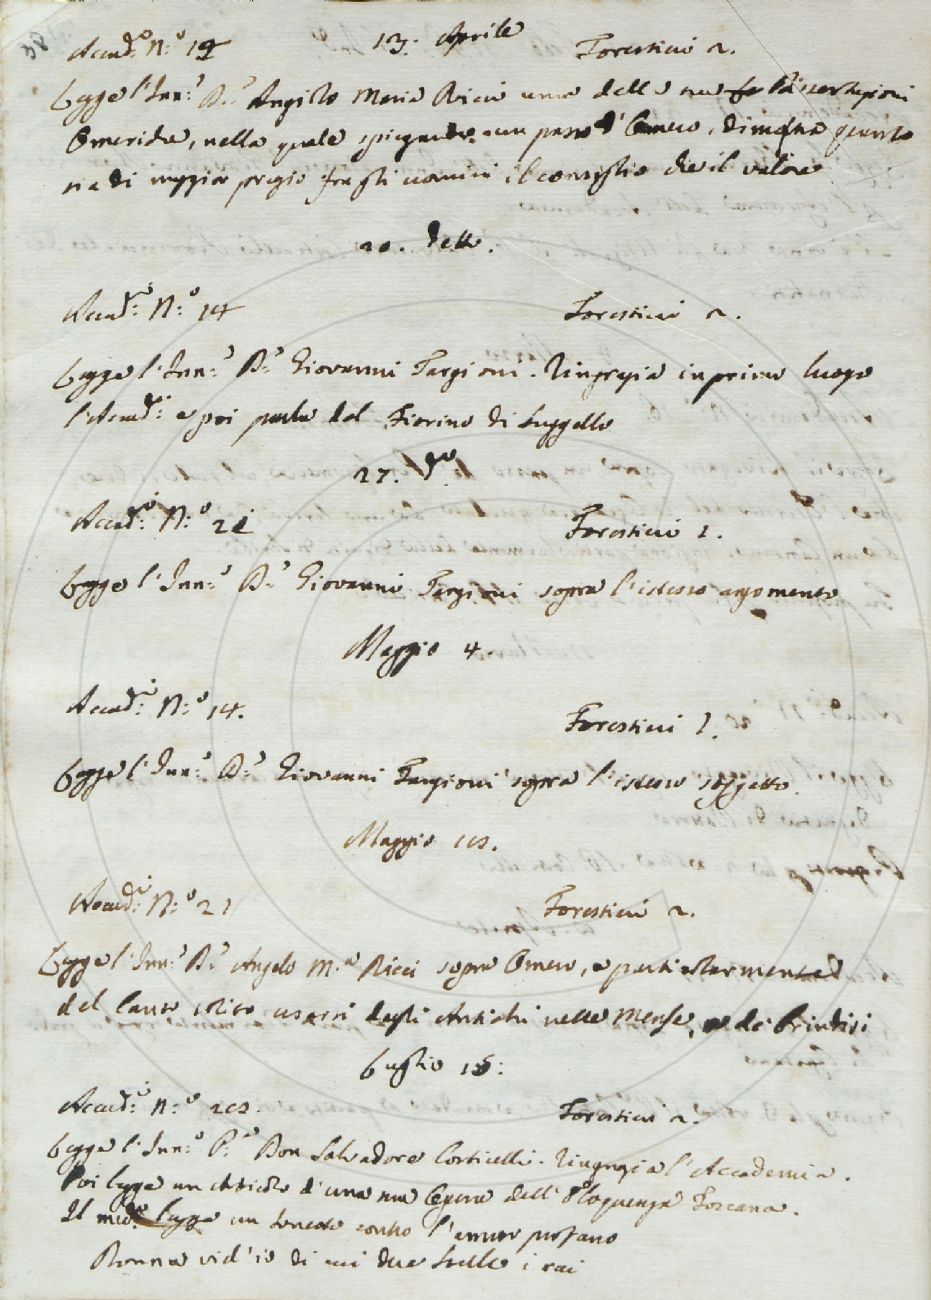 38
13. Aprile
Accad.ci N.o 19 Forestieri 2.
Legge l'Inn.o D.r Angiolo Maria Ricci una delle sue Dissertazioni
Omeriche, nella quale spiegando un passo d'Omero, dimostra quanto
sia di maggior pregio fra gli uomini il consiglio che il valore
20. detto.
Accad.ci N.o 14 Forestieri 2.
Legge l'Inn.o D.r Giovanni Targioni. Ringrazia in primo luogo
l'Accad.a e poi parla del Fiorino di Suggello
27. d.o
Accad.ci N.o 21 Forestieri 1.
Legge l'Inn.o D.r Giovanni Targioni sopra l'istesso argomento
Maggio 4.
Accad.ci N.o 14. Forestieri 1.
Legge l'Inn.o D.r Giovanni Targioni sopra l'istesso soggetto.
Maggio
Accad.ci N.o 21 Forestieri 2.
Legge l'Inn.o D.r Angelo M.a Ricci sopra Omero, e particolarmente
del Canto solito usarsi dagli Antichi nelle Mense, e de' Brindisi
Luglio
Accad.ci N.o Forestieri 2.
Legge l'Inn.o P.e Don Salvadore Corticelli. Ringrazia l'Accademia.
Poi legge un Articolo d'una sua Opera dell'Eloquenza Toscana.
Il med.o Legge un Sonetto contro l'amor profano
Donna vid'io di cui due stelle i rai